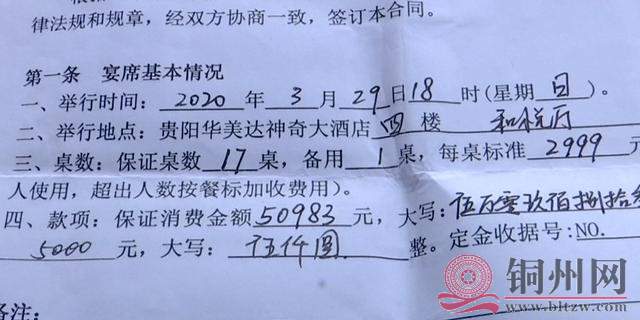 律法规和规章，经双方协商一致，签订本合同。
第一条 宴席基本情况
一、举行时间：2020年3月29日18时(星期日)。
二、举行地点：贵阳华美达神奇大酒店四楼 和悦厅
三、桌数：保证桌数17桌，备用1桌，每桌标准2999元
人使用，超出人数按餐标加收费用）。
四、款项：保证消费金额50983元，大写：伍万零玖佰捌拾叁
5000元，大写：伍仟圆整。定金收据号：NO.
备注：
铜州网
www.bltzw.com